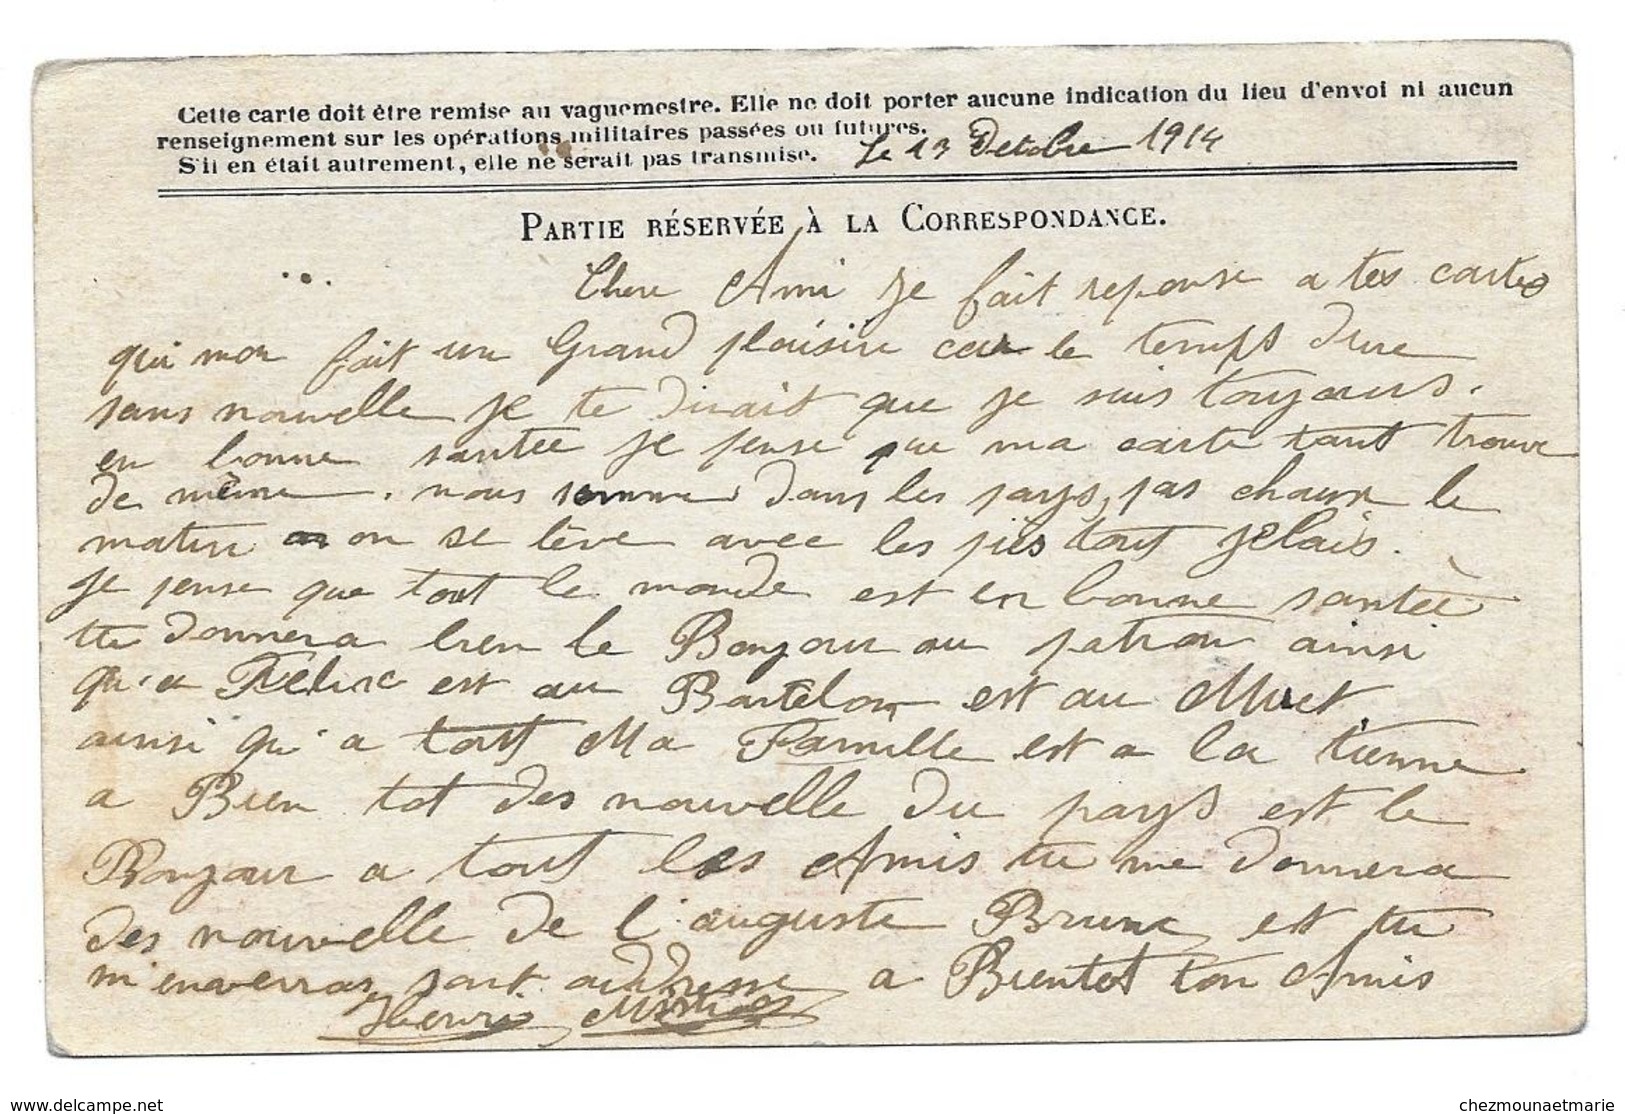 Cette carte doit être remise au vaguemestre. Elle ne doit porter aucune indication du lieu d'envoi ni aucun
renseignement sur les opérations militaires passées ou futures.
S'il en était autrement, elle ne serait pas transmise. Le 13 Octobre 1914
PARTIE RÉSERVÉE À LA CORRESPONDANCE.
Chere Ami je fait reponse a tes cartes
qui mon fait un Grand plaisire car le temps dure
sans nouvelle je te dirait que je suis toujours.
en bonne santée je pense que ma carte tant trouve
de même. nous somme dans les pays, pas chaux le
matin on se lève avec les piés tout jelais.
je pense que tout le monde est en bonne santée
tu donnera bien le Bonjour au patron ainsi
qu'a Felix est au Bartelon est au Muet
ainsi qu'a tout Ma Famille est a la tienne
a Bien tot des nouvelle du pays est le
Bonjour a tout les Amis tu me donnera
des nouvelle de l'auguste Brune est tu
m'enverras sont addresse a Bientot ton Amis
Henri
www.delcampe.net
chezmounaetmarie